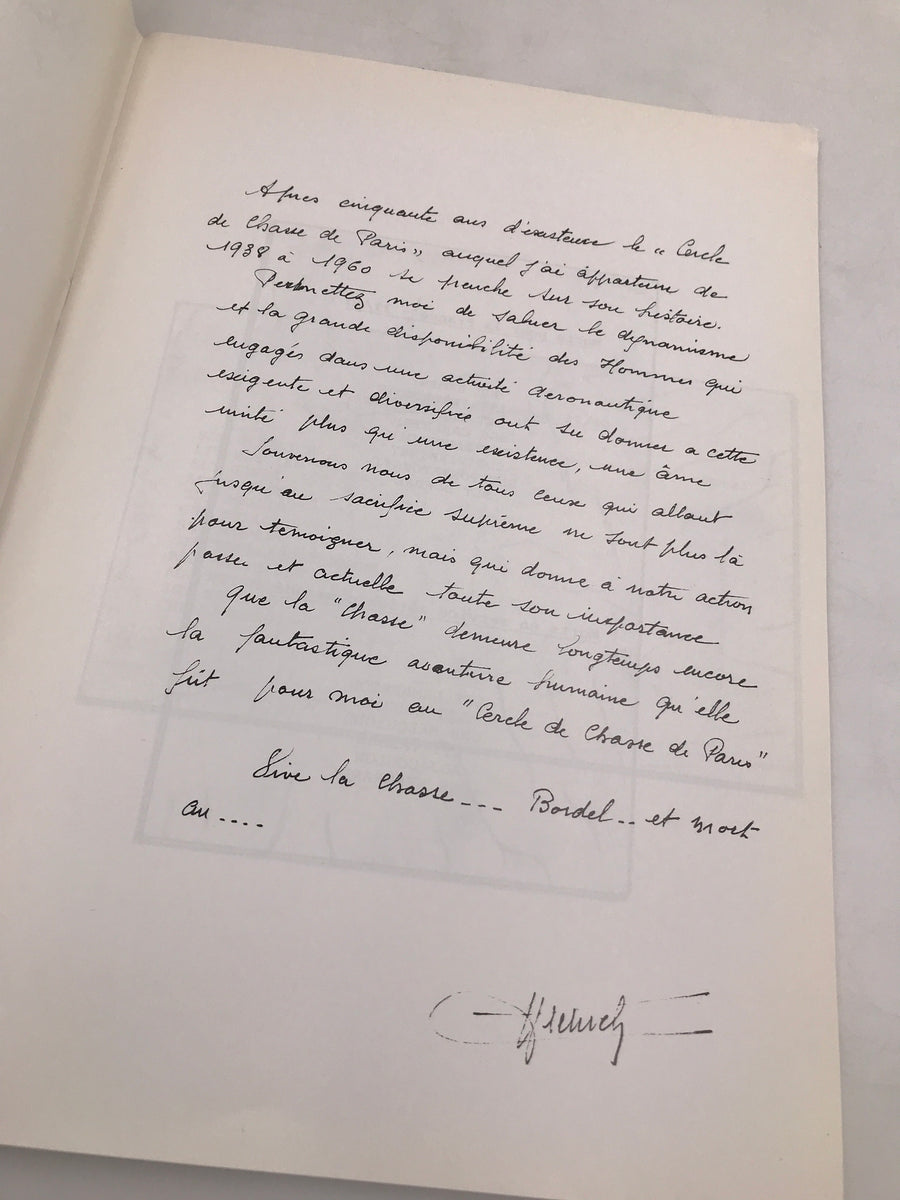 Apres cinquante ans d'existence le « Cercle
de Chasse de Paris » auquel j'ai appartenu de
1938 à 1960 se penche sur son histoire.
Permettez moi de saluer le dynamisme
et la grande disponibilité des Hommes qui
engagés dans une activité aeronautique
exigente et diversifiée ont su donner a cette
unité plus qu'une existence, une âme
Souvenons nous de tous ceux qui allant
jusqu'au sacrifice suprême ne sont plus là
pour temoigner, mais qui donne à notre action
passée et actuelle toute son importance
Que la "Chasse" demeure longtemps encore
la fantastique aventure humaine qu'elle
fût pour moi au "Cercle de Chasse de Paris"
Vive la Chasse--- Bordel.. et mort
au ....